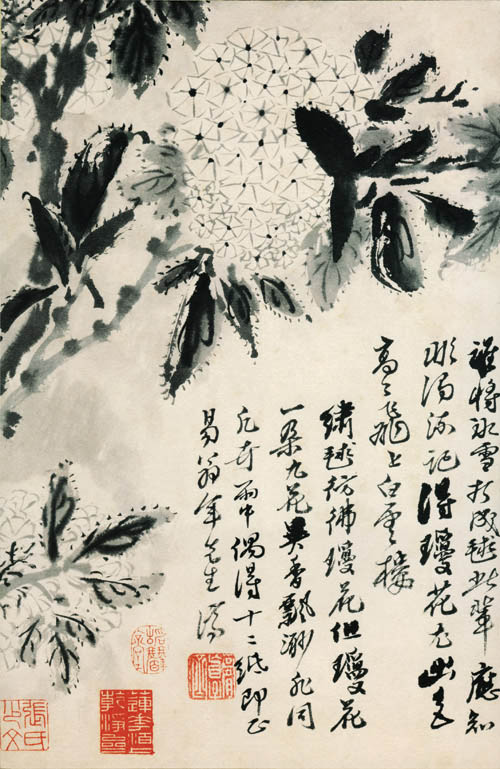 誰將冰雪打成毬此輩應知
流記得瓊花
高高飛上白雲樓
繡毬彷彿瓊花但瓊花
一朵九花異香飄渺非同
凡卉雨中偶得十二紙即正
易翁年先生 濟